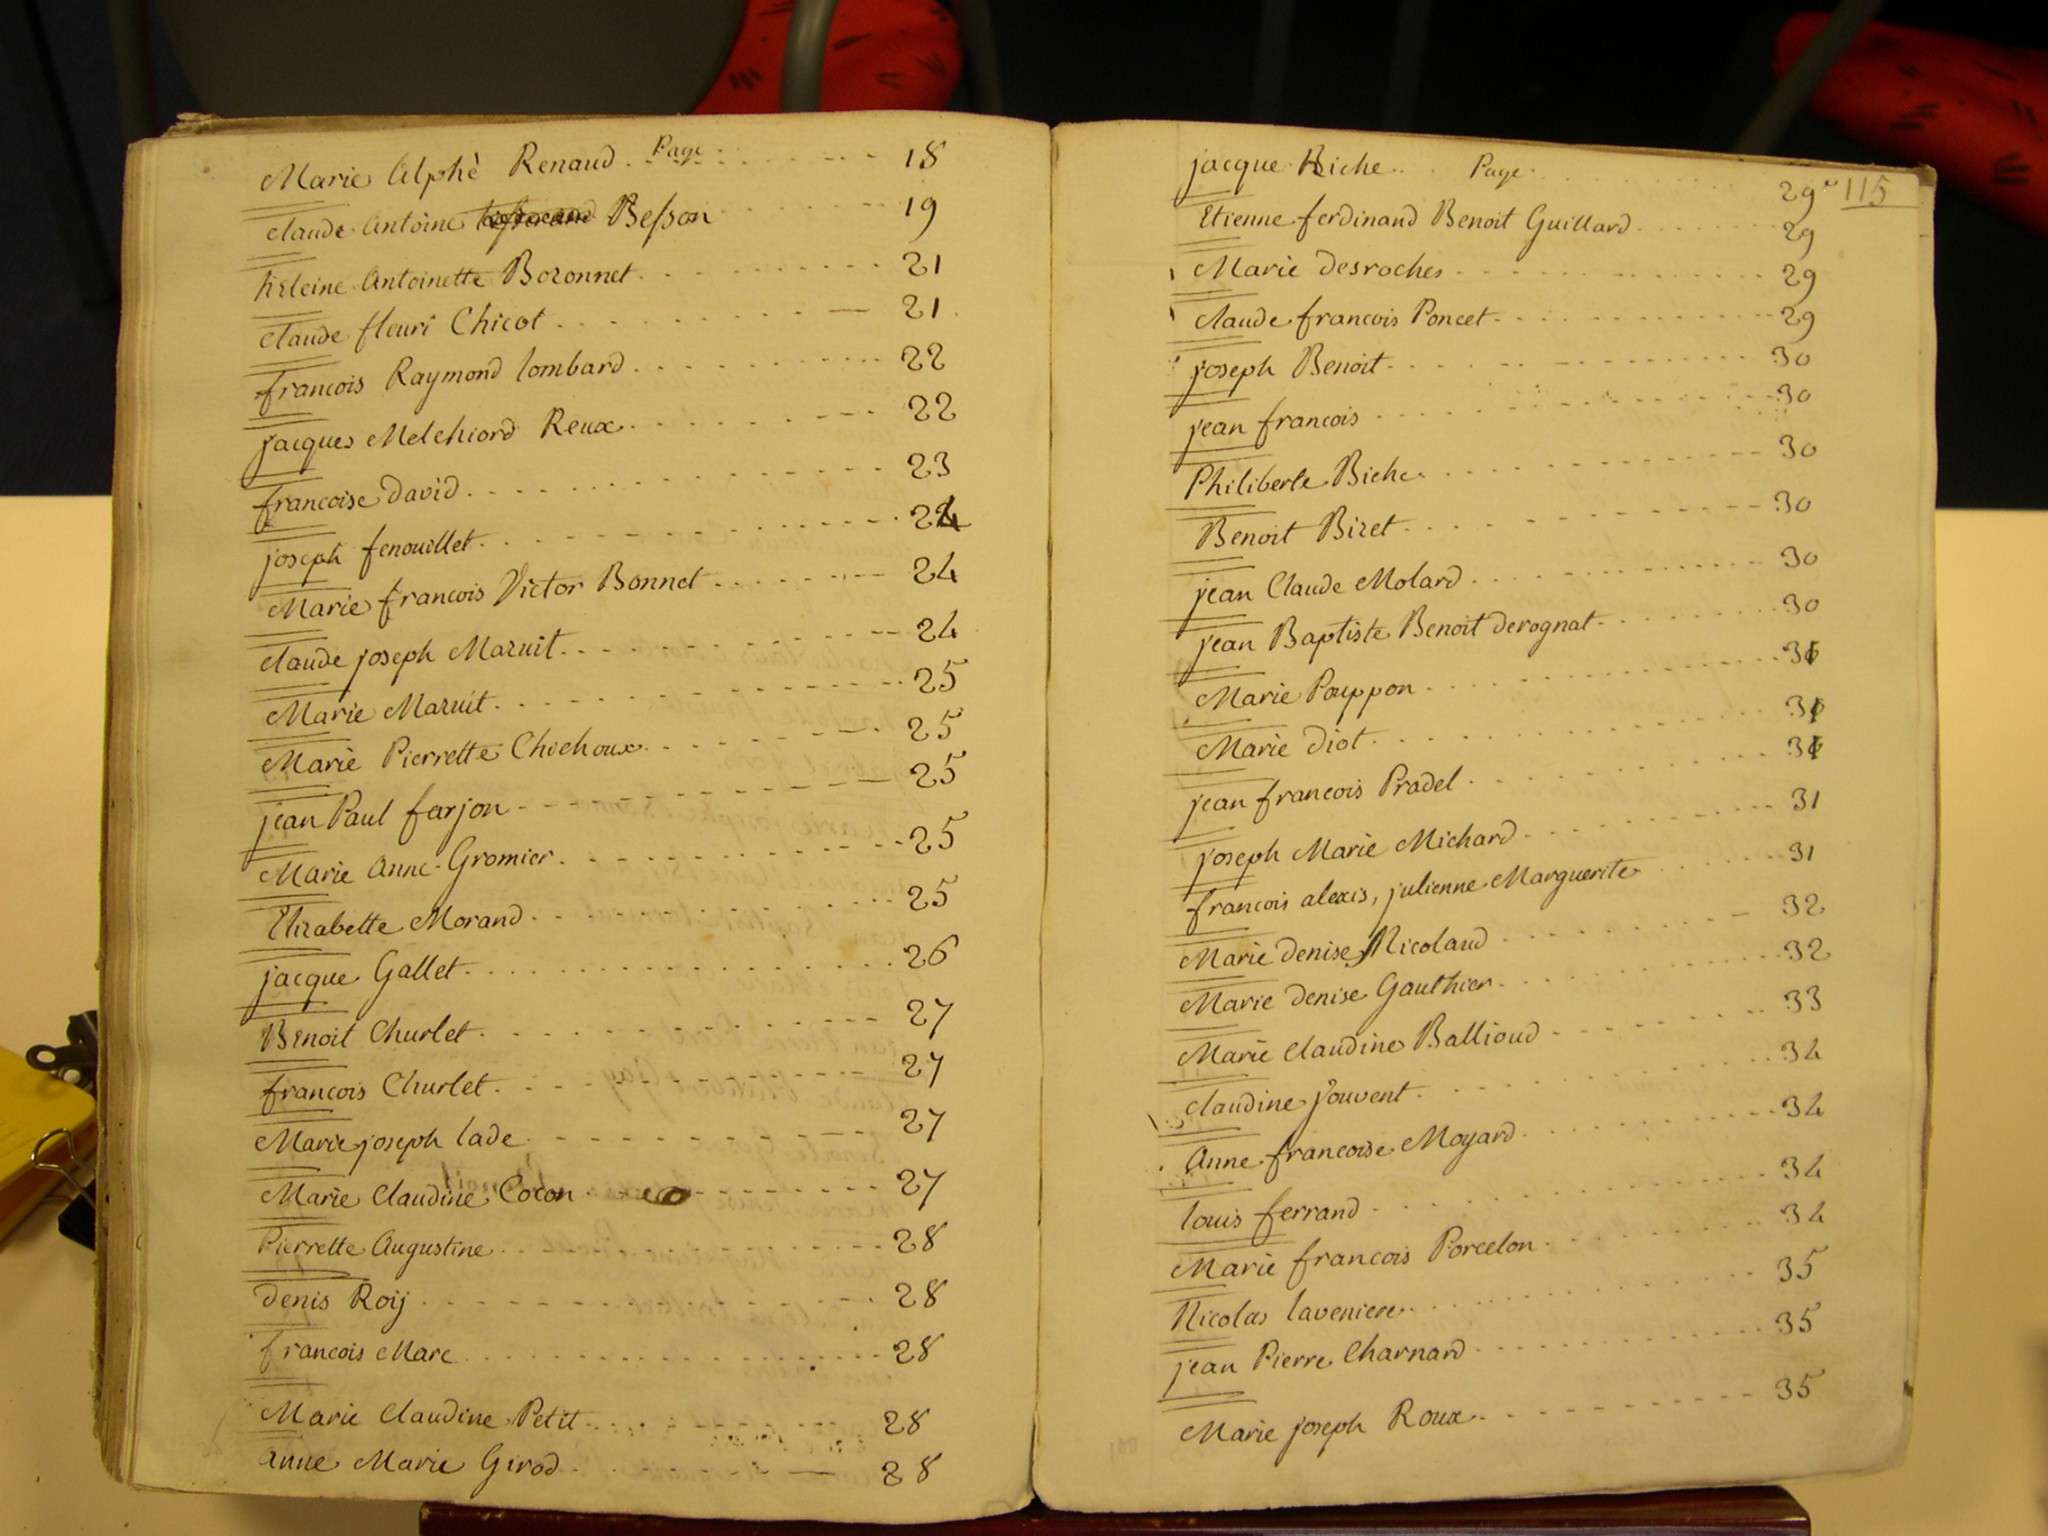 Marie Alphè Renaud . Page . . . 18
Claude Antoine Besson . . . 19
héleine Antoinette Bozonnet . . . 21
Claude fleuri Chicot . . . 21
françois Raymond lombard . . . 22
jacques Melchiord Reux . . . 22
françoise david . . . 23
joseph fenouillet . . . 24
Marie françois Victor Bonnet . . . 24
Claude joseph Mazuit . . . 24
Marie Mazuit . . . 25
Marie Pierrette Chichoux . . . 25
jean Paul farjon . . . 25
Marie Anne Gromier . . . 25
Elizabette Morand . . . 25
jacque Gallet . . . 26
Benoit Churlet . . . 27
françois Churlet . . . 27
Marie joseph lade . . . 27
Marie Claudine Cocon . . . 27
Pierrette Augustine . . . 28
denis Roij . . . 28
francois Marc . . . 28
Marie Claudine Petit . . . 28
anne Marie Girod . . . 28
jacque Biche . . Page . . . 29
115
Etienne ferdinand Benoit Guillard . . . 29
Marie desroches . . . 29
Claude francois Poncet . . . 29
joseph Benoit . . . 30
jean francois . . . 30
Philiberte Biche . . . 30
Benoit Bizet . . . 30
jean Claude Molard . . . 30
jean Baptiste Benoit derognat . . . 30
Marie Pauppon . . . 31
Marie diot . . . 31
jean francois Pradel . . . 31
joseph Marie Michard . . . 31
francois alexis, julienne Marguerite . . . 31
Marie denise Nicolaud . . . 32
Marie denise Gauthier . . . 32
Marie Claudine Ballioud . . . 33
Claudine jouvent . . . 34
Anne francoise Moyard . . . 34
louis ferrand . . . 34
Marie francois Porcelon . . . 34
Nicolas laveniere . . . 35
jean Pierre Charnard . . . 35
Marie joseph Roux . . . 35